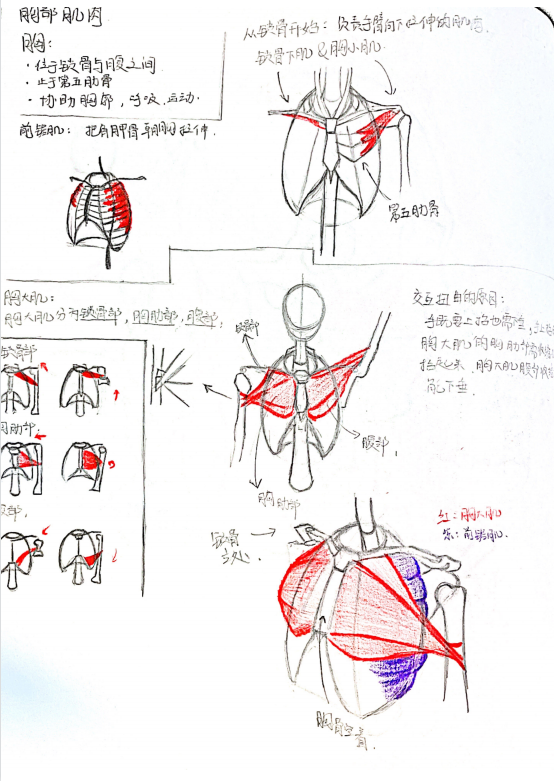 胸部肌肉
胸:
·位于锁骨与腹之间
·止于第五肋骨
·协助胸部,呼吸,运动.
前锯肌: 把肩胛骨与胸向延伸.
从锁骨开始: 负责手臂向下延伸的肌肉.
锁骨下肌&胸小肌
第五肋骨
胸大肌:
胸大肌分为锁骨部,胸肋部,腹部;
锁骨部
肋部,
部,
腹部,
胸肋部
交互扭曲的原因:
胸大肌的胸肋部
抬起来. 胸大肌腹部
能下垂.
红:胸大肌
紫:前锯肌.
锁骨
胸骨